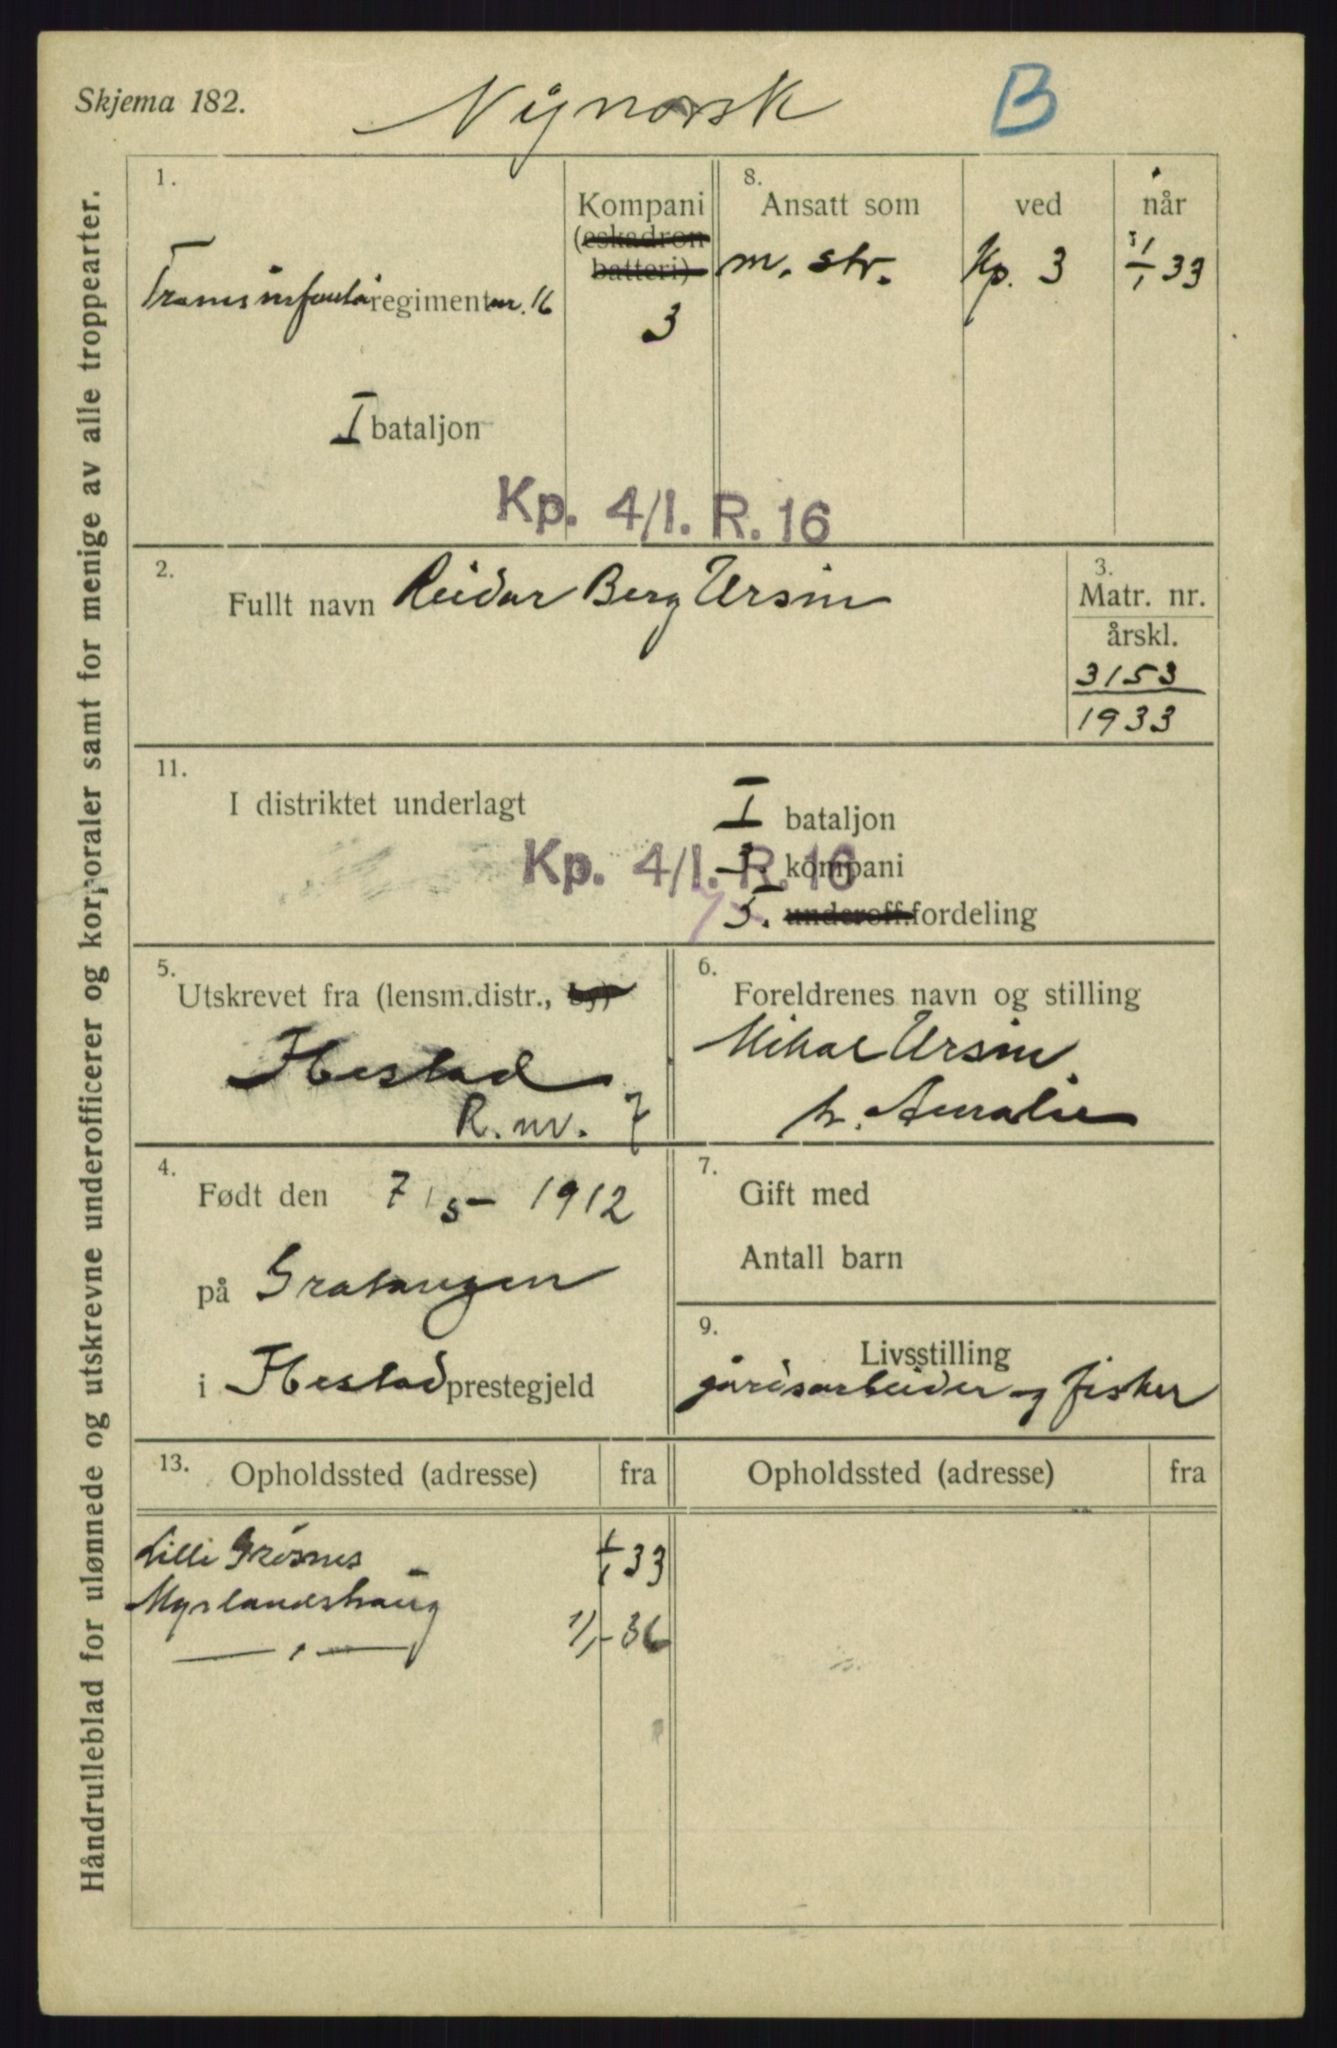 Skjema 182.
Nynorsk
B
Håndrulleblad for ulønnede og utskrevne underofficerer og korporaler samt for menige av alle troppearter.
1.
regiment nr. 16
I bataljon
Kompani
(eskadron
batteri)
3
8.
Ansatt som
ved
når
m. str.
Kp. 3
1/1 33
Kp. 4/I. R. 16
2.
Fullt navn Reidar Berg Ursin
3.
Matr. nr.
årskl.
3153
1933
11.
I distriktet underlagt
I bataljon
3. kompani
Kp. 4/I. R. 16
5. underoff.fordeling
5.
Utskrevet fra (lensm.distr., by)
Ibestad
R. nv. 7
6.
Foreldrenes navn og stilling
Mikal Ursin
h. Auralie
4.
Født den 7/5- 1912
på Gratangen
i Ibestad prestegjeld
7.
Gift med
Antall barn
9.
Livsstilling
gårdsarbeider og fisker
13.
Opholdssted (adresse)
fra
Opholdssted (adresse)
fra
Lilli Grøsnes 1/1 33
Myrlandshaug
— " — 1/1- 36